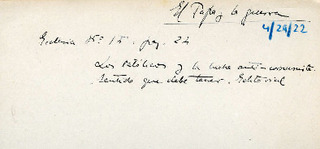 El Papa y la guerra
4/24/22
Ecclesia Nº 15. pag. 24
Los católicos y la lucha anticomunista.
Sentido que debe tener. Editorial